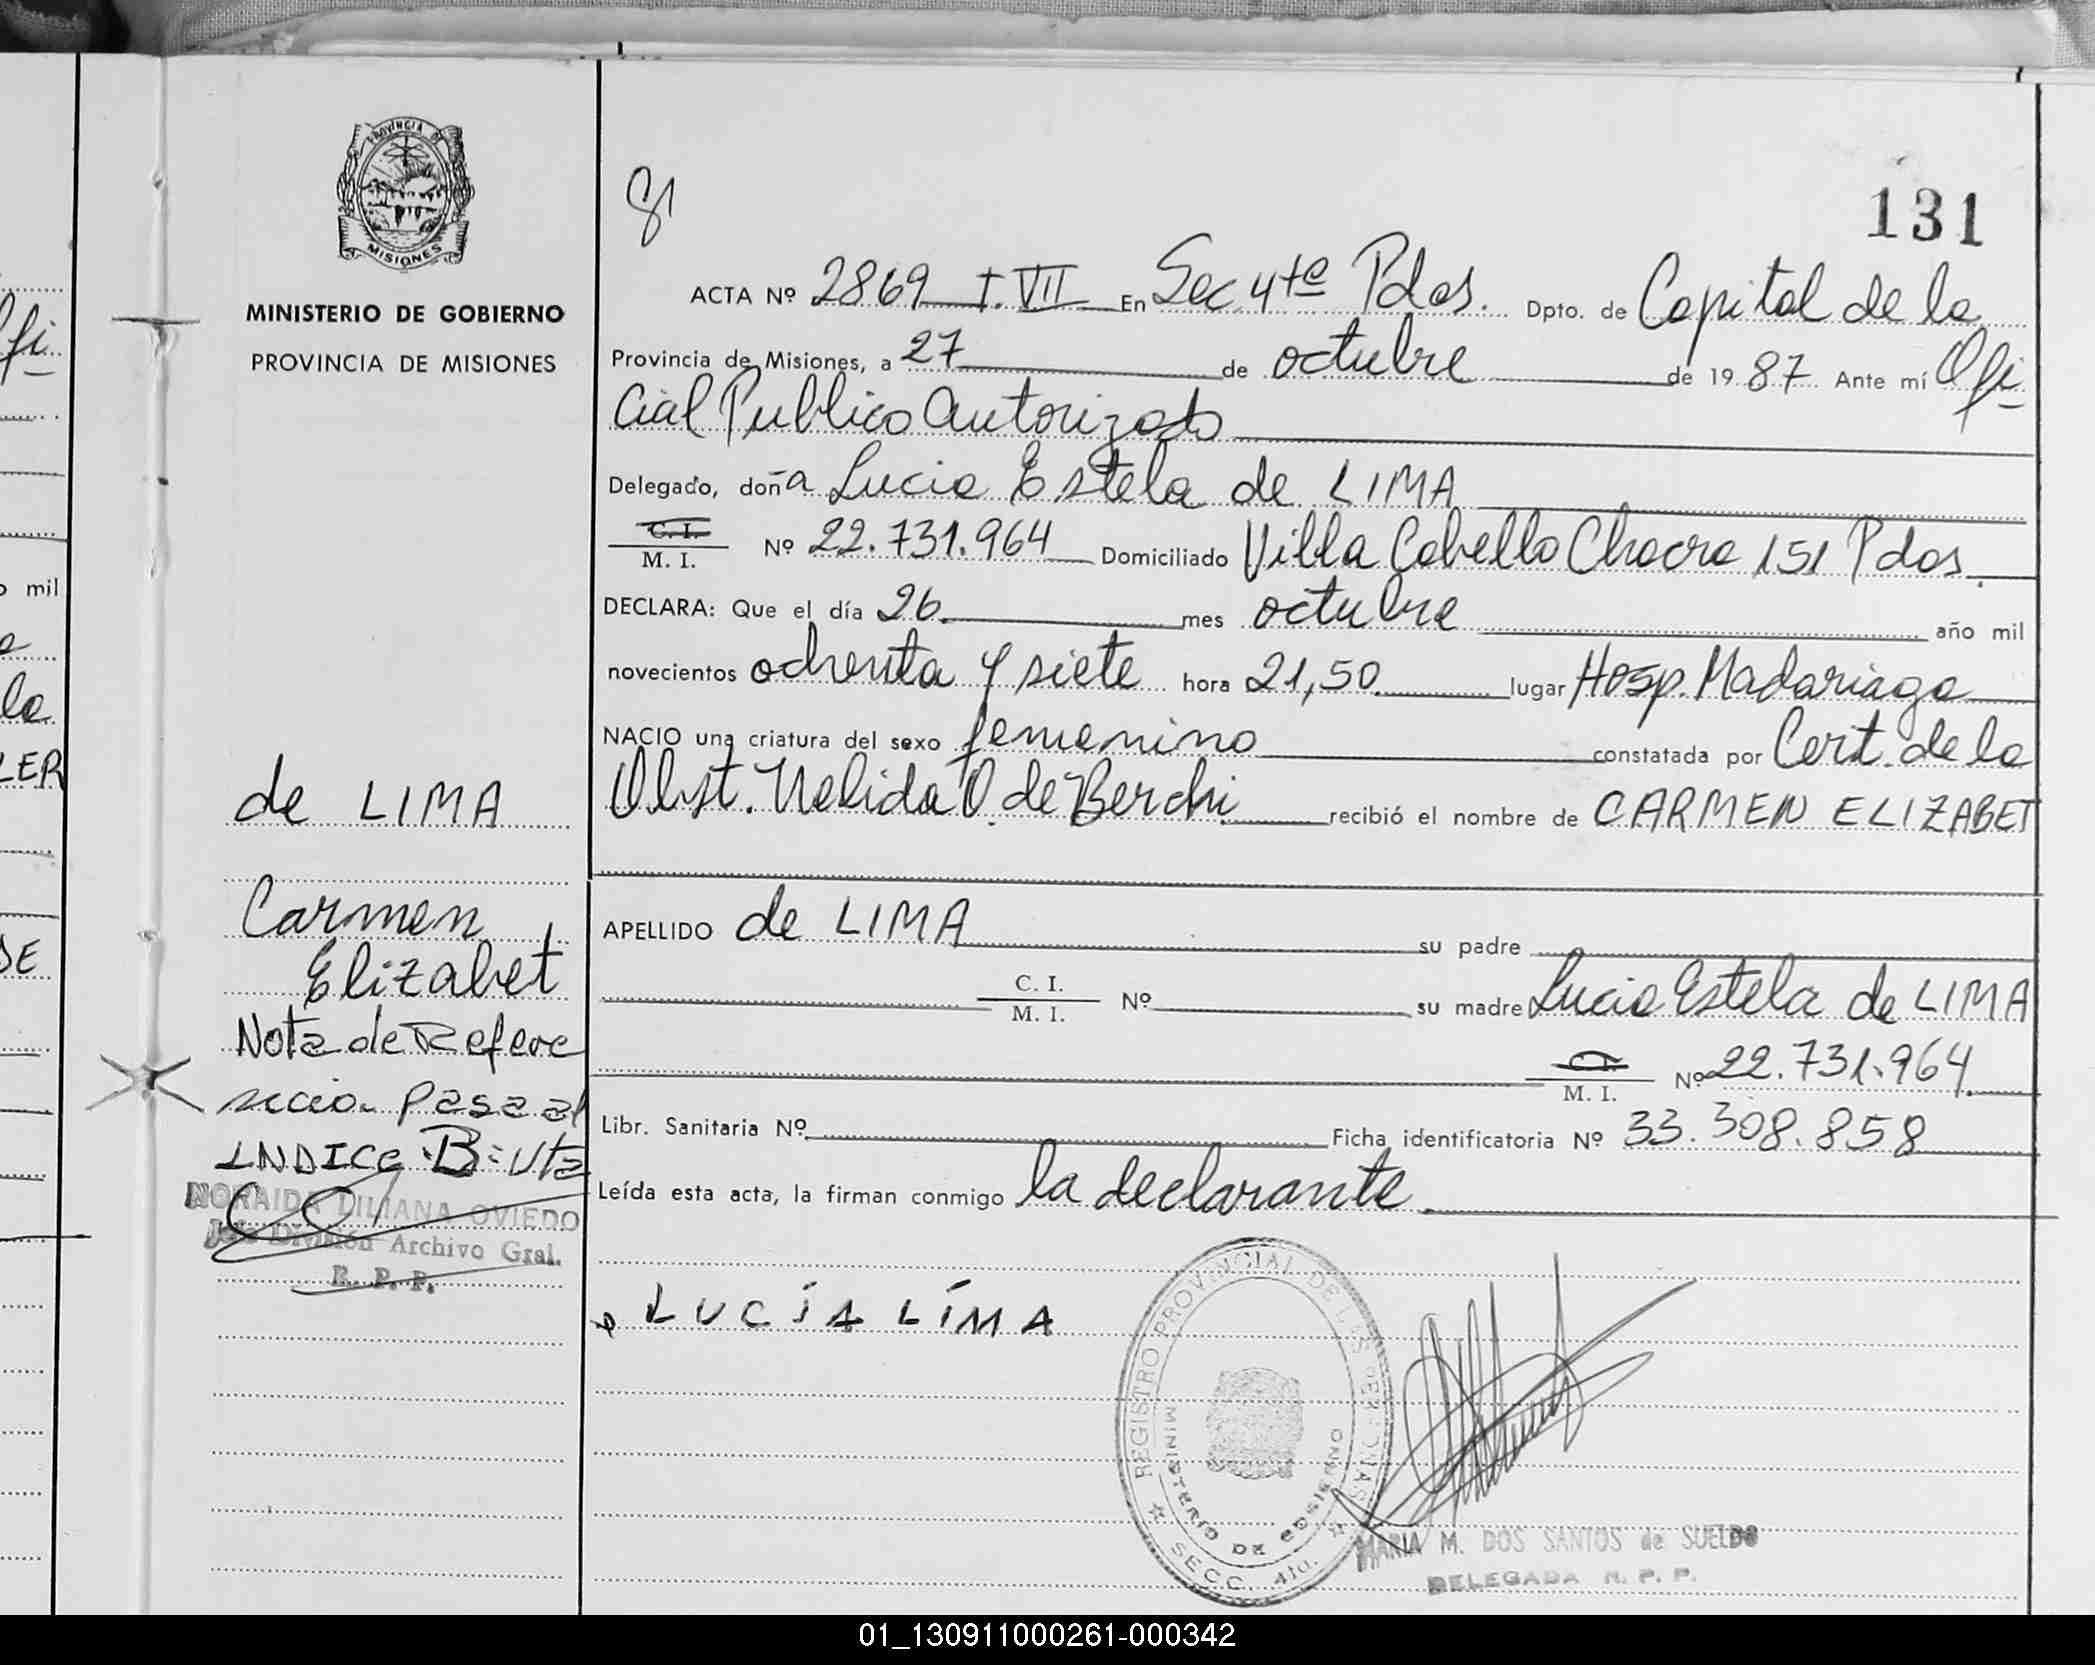 PROVINCIA DE
MISIONES
MINISTERIO DE GOBIERNO
PROVINCIA DE MISIONES
131
ACTA Nº 2869 T. VII En Sec 4ta Pdas. Dpto. de Capital de la
Provincia de Misiones, a 27 de octubre de 1987 Ante mí Ofi-
cial Publico Autorizado
Delegado, doña Lucia Estela de LIMA
C. I.
M. I. Nº 22.731.964 Domiciliado Villa Cabello Chacra 151 Pdas.
DECLARA: Que el día 26 mes octubre año mil
novecientos ochenta y siete hora 21,50 lugar Hosp. Madariaga
NACIO una criatura del sexo femenino constatada por Cert. de la
Obst. Nelida O. de Berchi recibió el nombre de CARMEN ELIZABET
APELLIDO de LIMA su padre
C. I.
M. I. Nº su madre Lucia Estela de LIMA
M. I. Nº 22.731.964
Libr. Sanitaria Nº Ficha identificatoria Nº 33.308.858
Leída esta acta, la firman conmigo la declarante
LUCÍA LÍMA
REGISTRO PROVINCIAL DE LAS PERSONAS
MINISTERIO DE GOBIERNO
SECC. 4ta.
MARIA M. DOS SANTOS de SUELDO
DELEGADA R. P. P.
de LIMA
Carmen
Elizabet
Nota de Refere
pasa al
INDICE B
NORAIDA LILIANA OVIEDO
Jefe División Archivo Gral.
R. P. P.
Ofi-
mil
la
LER
DE
01_130911000261-000342